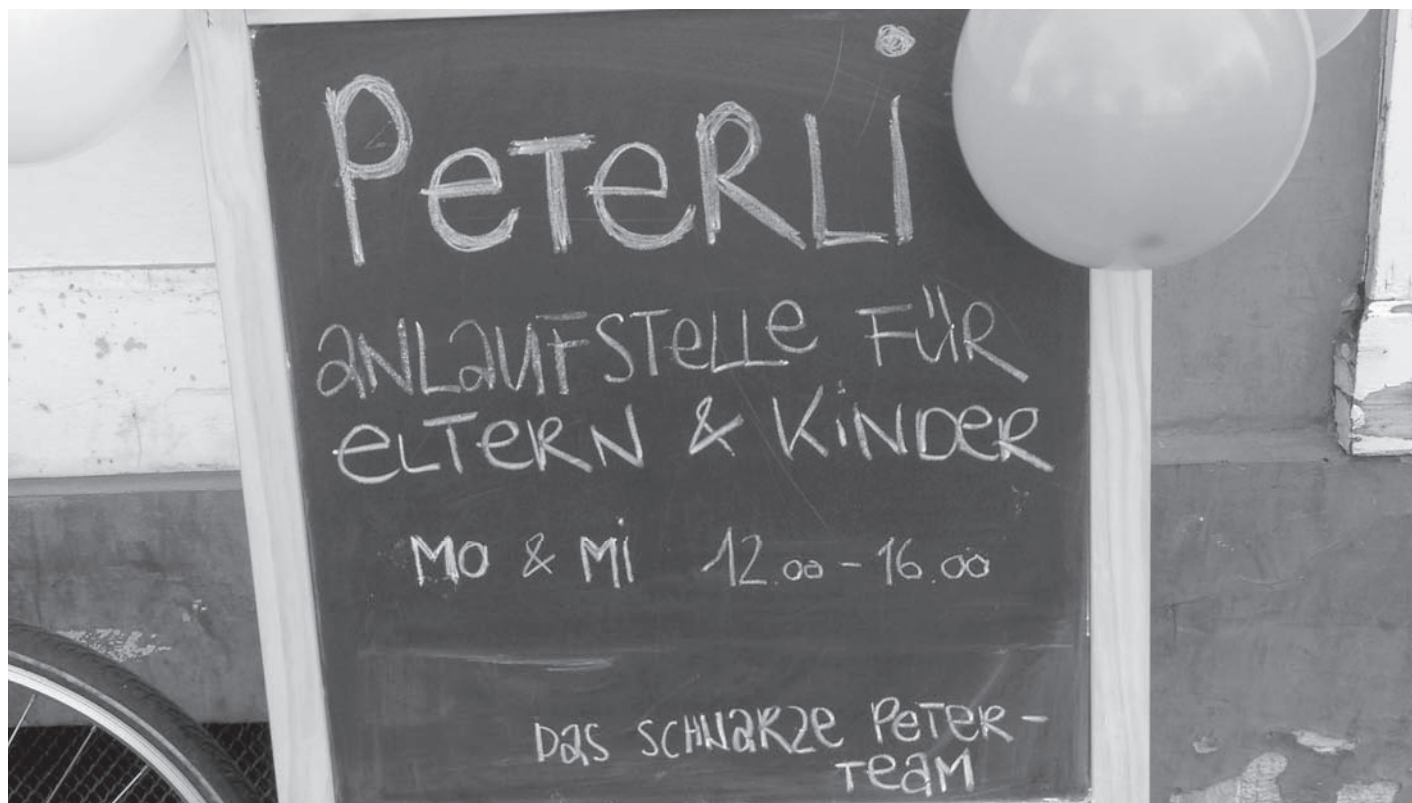 PeTeRLi
aNLaUFSTeLLe FÜR
eLTeRN & KiNDeR
MO & Mi 12.00 - 16.00
Das SCHWaRZe PeTeR-
TeaM